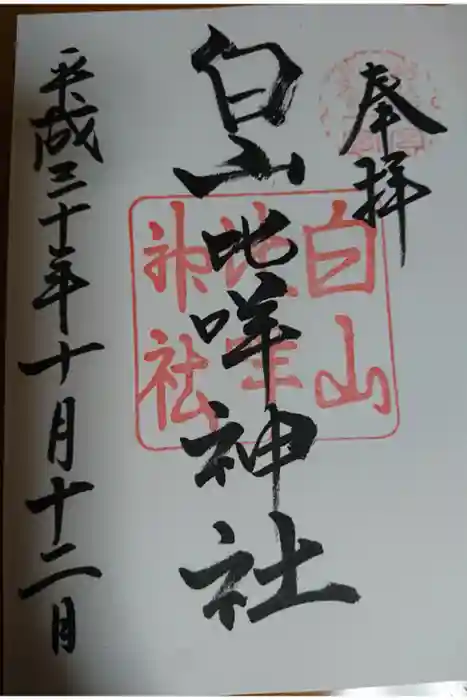 奉拝
白山比咩神社
平成三十年十月十二日
白山
比咩
神社